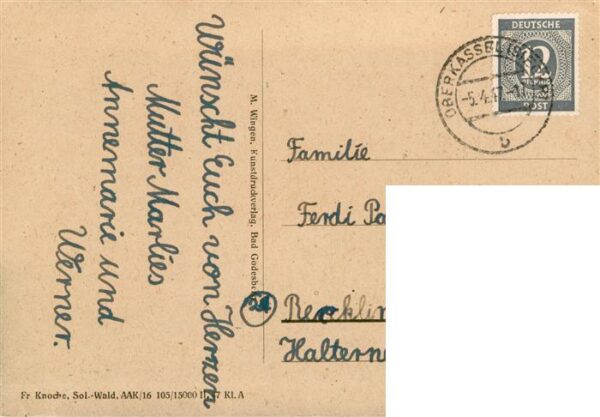 Wünscht Euch von Herzen
Mutter Marlies
Annemarie und
Werner.
M. Wingen, Kunstdruckverlag, Bad Godesberg
DEUTSCHE
12
PFENNIG
POST
OBERKASSEL
-5.4.47
b
Familie
Ferdi Pa
24
Haltern
Fr Knoche, Sol.-Wald, AAK/16 105/15000 II. 47 Kl. A